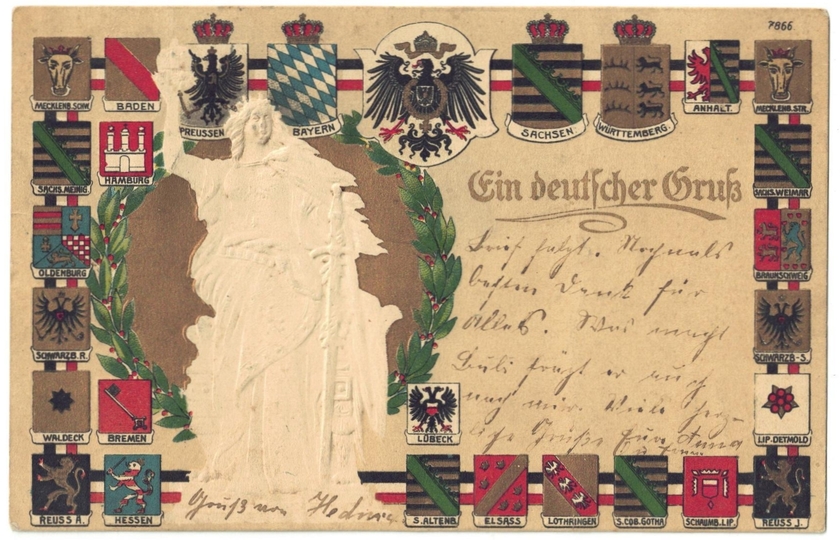 7866
MECKLENB. SCHW.
BADEN
PREUSSEN
BAYERN
SACHSEN
WÜRTTEMBERG.
ANHALT.
MECKLENB. STR.
SACHS. MEING.
HAMBURG
SACHS. WEIMAR
Ein deutscher Gruß
OLDENBURG
BRAUNSCHWEIG
SCHWARZB. R.
SCHWARZB-S.
WALDECK
BREMEN
LÜBECK
LIP. DETMOLD
REUSS A.
HESSEN
S. ALTENB.
ELSASS
LOTHRINGEN
S. COB. GOTHA
SCHAUMB. LIP.
REUSS J.
Brief folgt. Nochmals
besten Dank für
Alles. Was macht
fragt er auch
nach mir. Viele herz-
liche Grüße für Anna
Gruß von